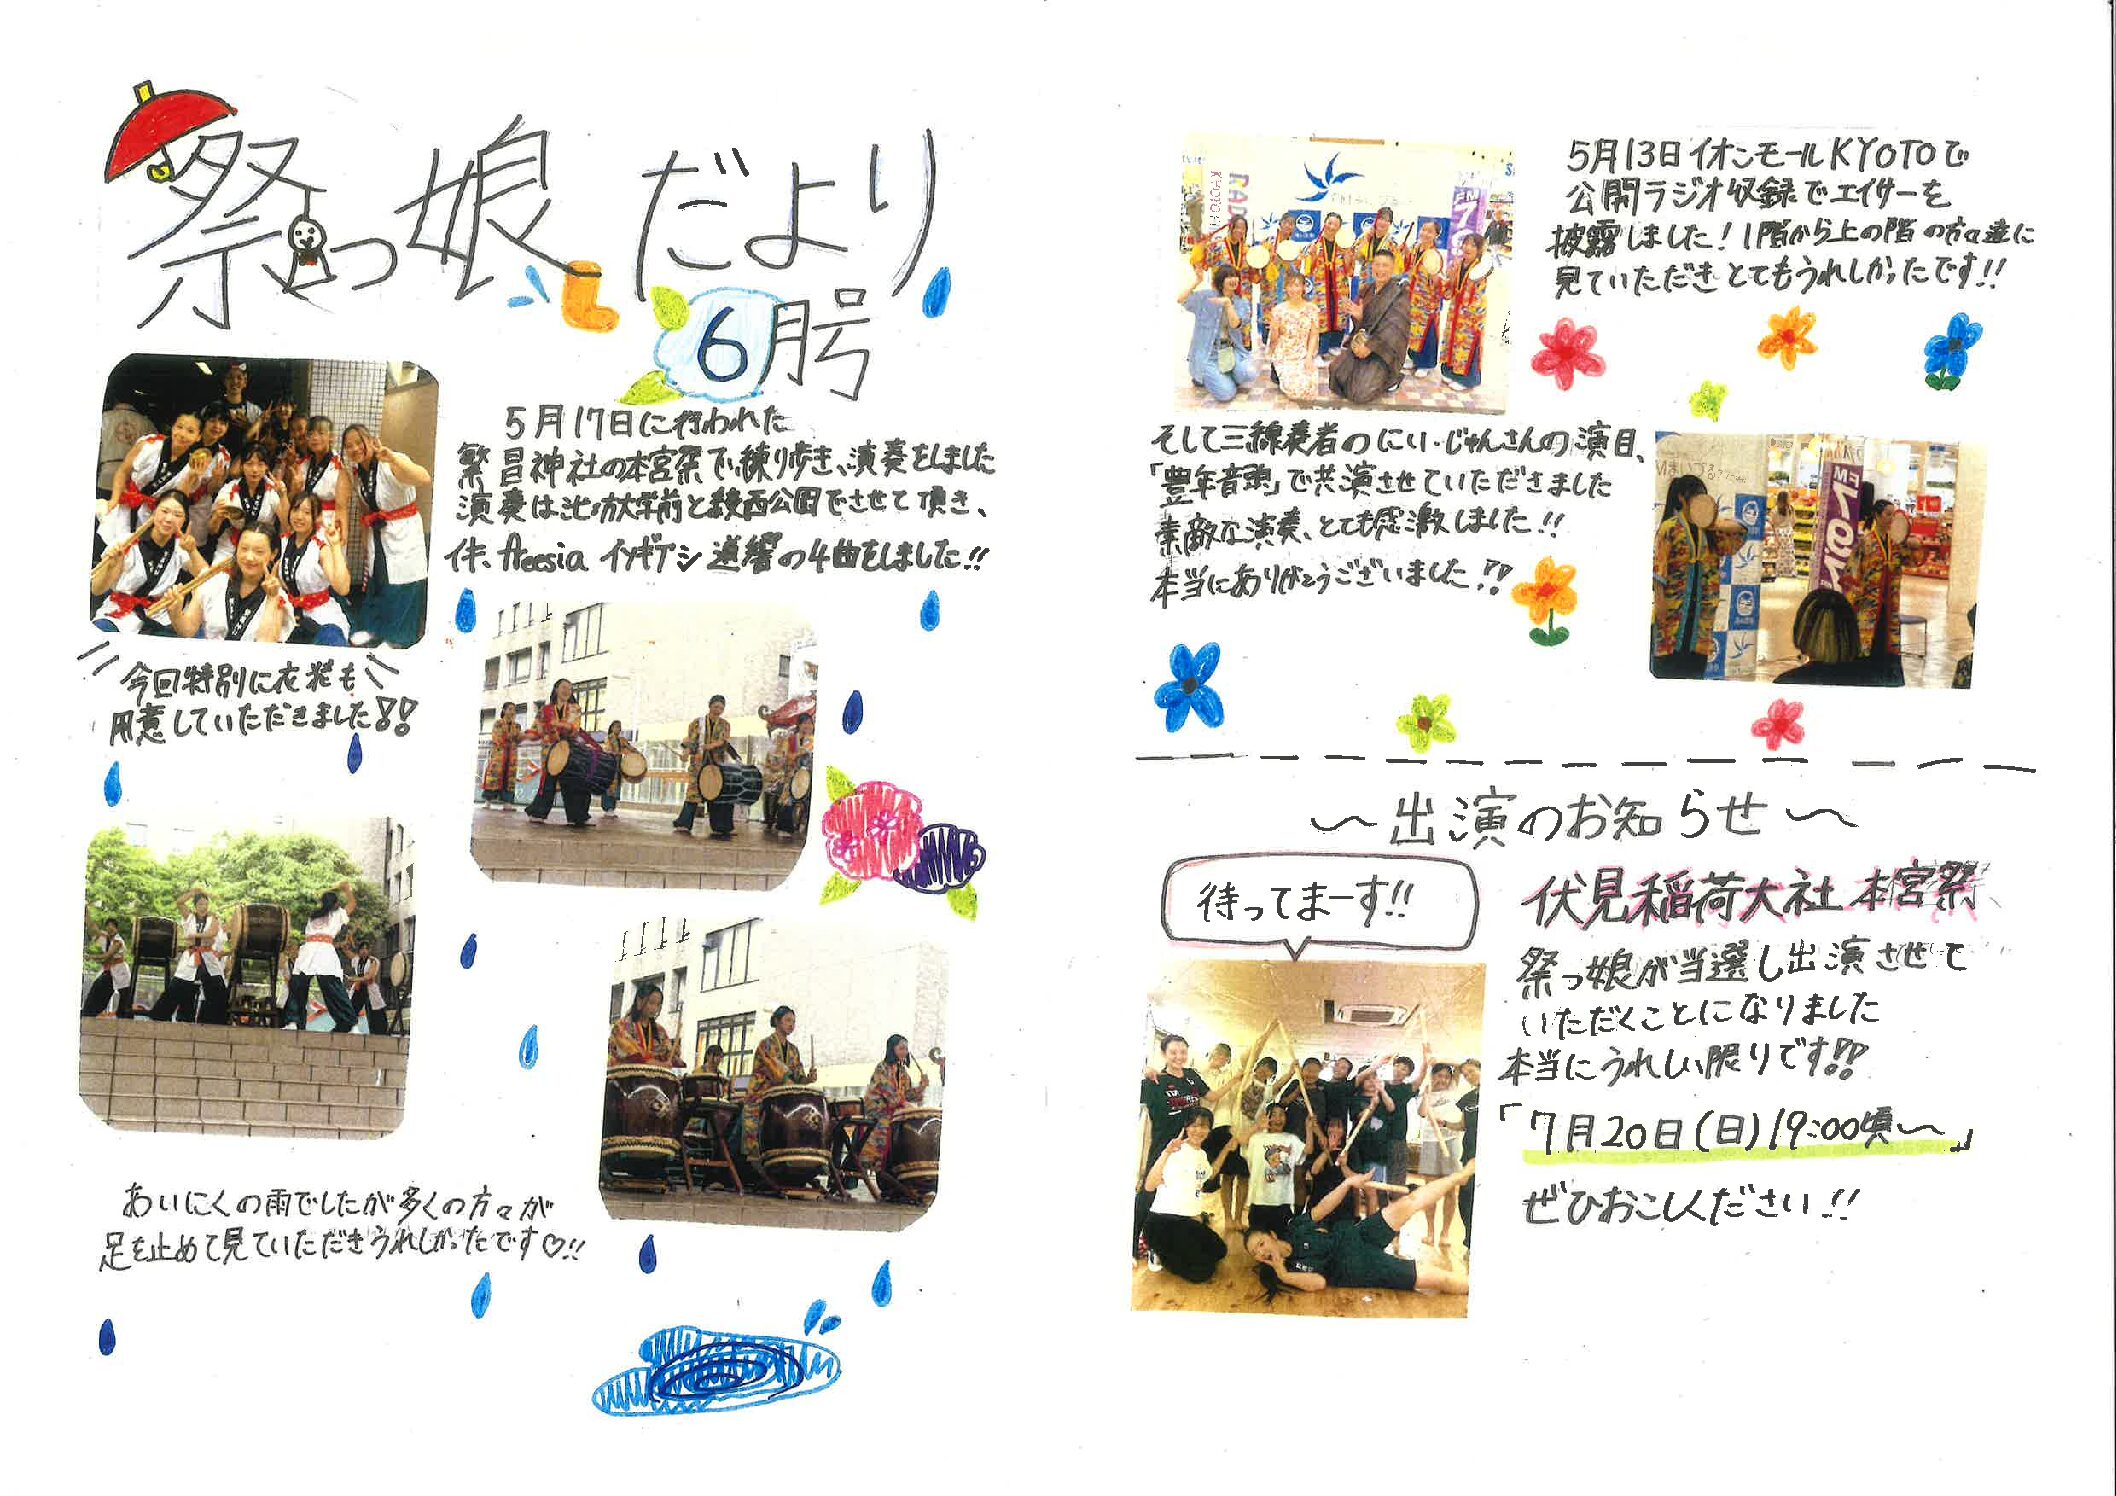 祭っ娘だより
6月号
5月17日に行われた
繁昌神社の本宮祭で練り歩き、演奏をしました
演奏は池坊大学前と綾西公園でさせて頂き、
イキ、Aeesia イソギアシ 道響の4曲をしました!!
今回特別に衣装も
用意していただきました!!
あいにくの雨でしたが多くの方々が
足を止めて見ていただきうれしかったです♡!!
5月13日イオンモールKYOTOで
公開ラジオ収録でエイサーを
披露しました!1階から上の階の方々達に
見ていただきとてもうれしかったです!!
そして三線奏者のにい・じゅんさんの演目、
「豊年音頭」で共演させていただきました
素敵な演奏、とても感激しました!!
本当にありがとうございました!!
〜出演のお知らせ〜
待ってまーす!!
伏見稲荷大社 本宮祭
祭っ娘が当選し出演させて
いただくことになりました
本当にうれしい限りです!!
「7月20日(日)19:00頃〜」
ぜひおこしください!!